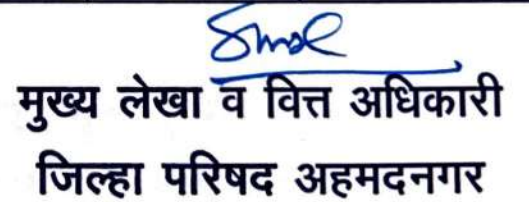 मुख्य लेखा व वित्त अधिकारी
जिल्हा परिषद अहमदनगर